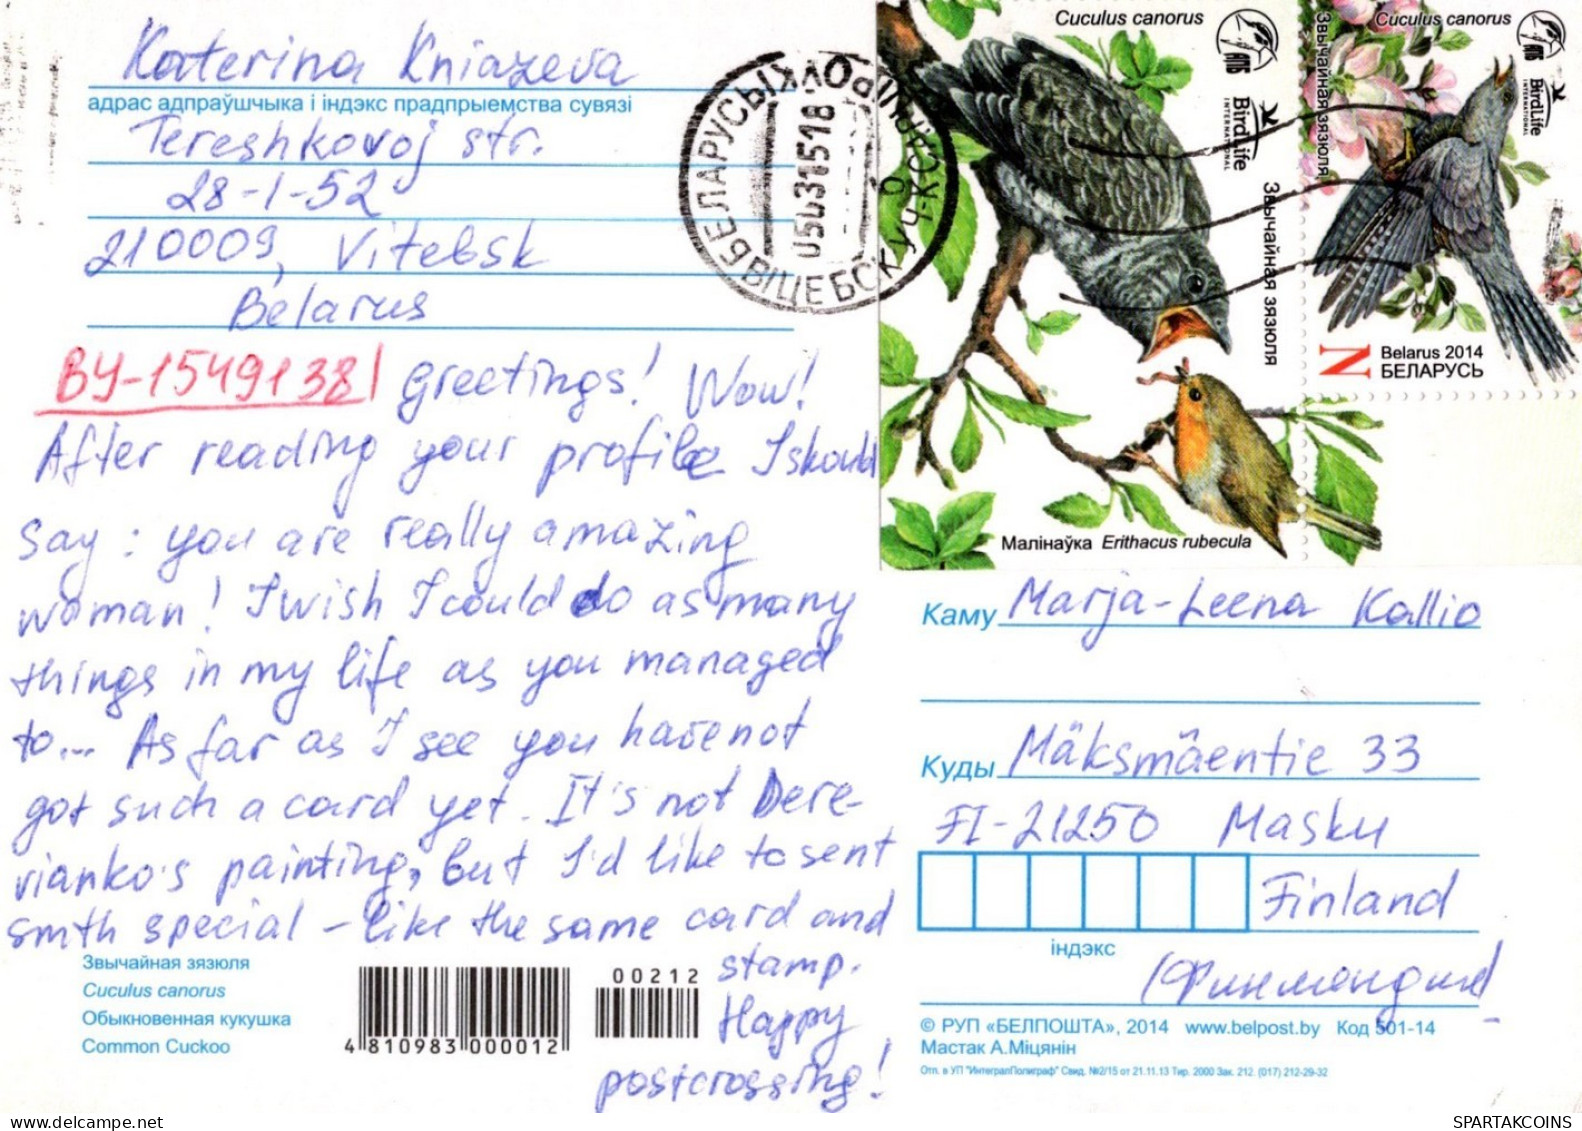 Katerina Kniazeva
адрас адпраўшчыка і індэкс прадпрыемства сувязі
Tereshkovoj str.
28-1-52
210009, Vitebsk
Belarus
BY-1549138
Greetings! Wow!
After reading your profile I should
say: you are really amazing
woman! I wish I could do as many
things in my life as you managed
to... As far as I see you have not
got such a card yet. It's not Dere-
vianko's painting, but I'd like to sent
smth special - like the same card and
stamp.
Happy
postcrossing!
Звычайная зязюля
Cuculus canorus
Обыкновенная кукушка
Common Cuckoo
4 810983 000012
00212
БЕЛАРУСЬ
ВІЦЕБСК
05031518
Cuculus canorus
АПБ
BirdLife
INTERNATIONAL
Звычайная зязюля
Малінаўка Erithacus rubecula
Cuculus canorus
АПБ
BirdLife
INTERNATIONAL
Звычайная зязюля
N
Belarus 2014
БЕЛАРУСЬ
Каму Marja-Leena Kallio
Куды Mäksmäentie 33
FI-21250 Masku
Finland
індэкс
(Финляндия)
© РУП «БЕЛПОШТА», 2014 www.belpost.by Код 501-14
Мастак А.Міцянін
Отп. в УП "ИнтегралПолиграф" Свид. №2/15 от 21.11.13 Тир. 2000 Зак. 212. (017) 212-29-32
SPARTAKCOINS